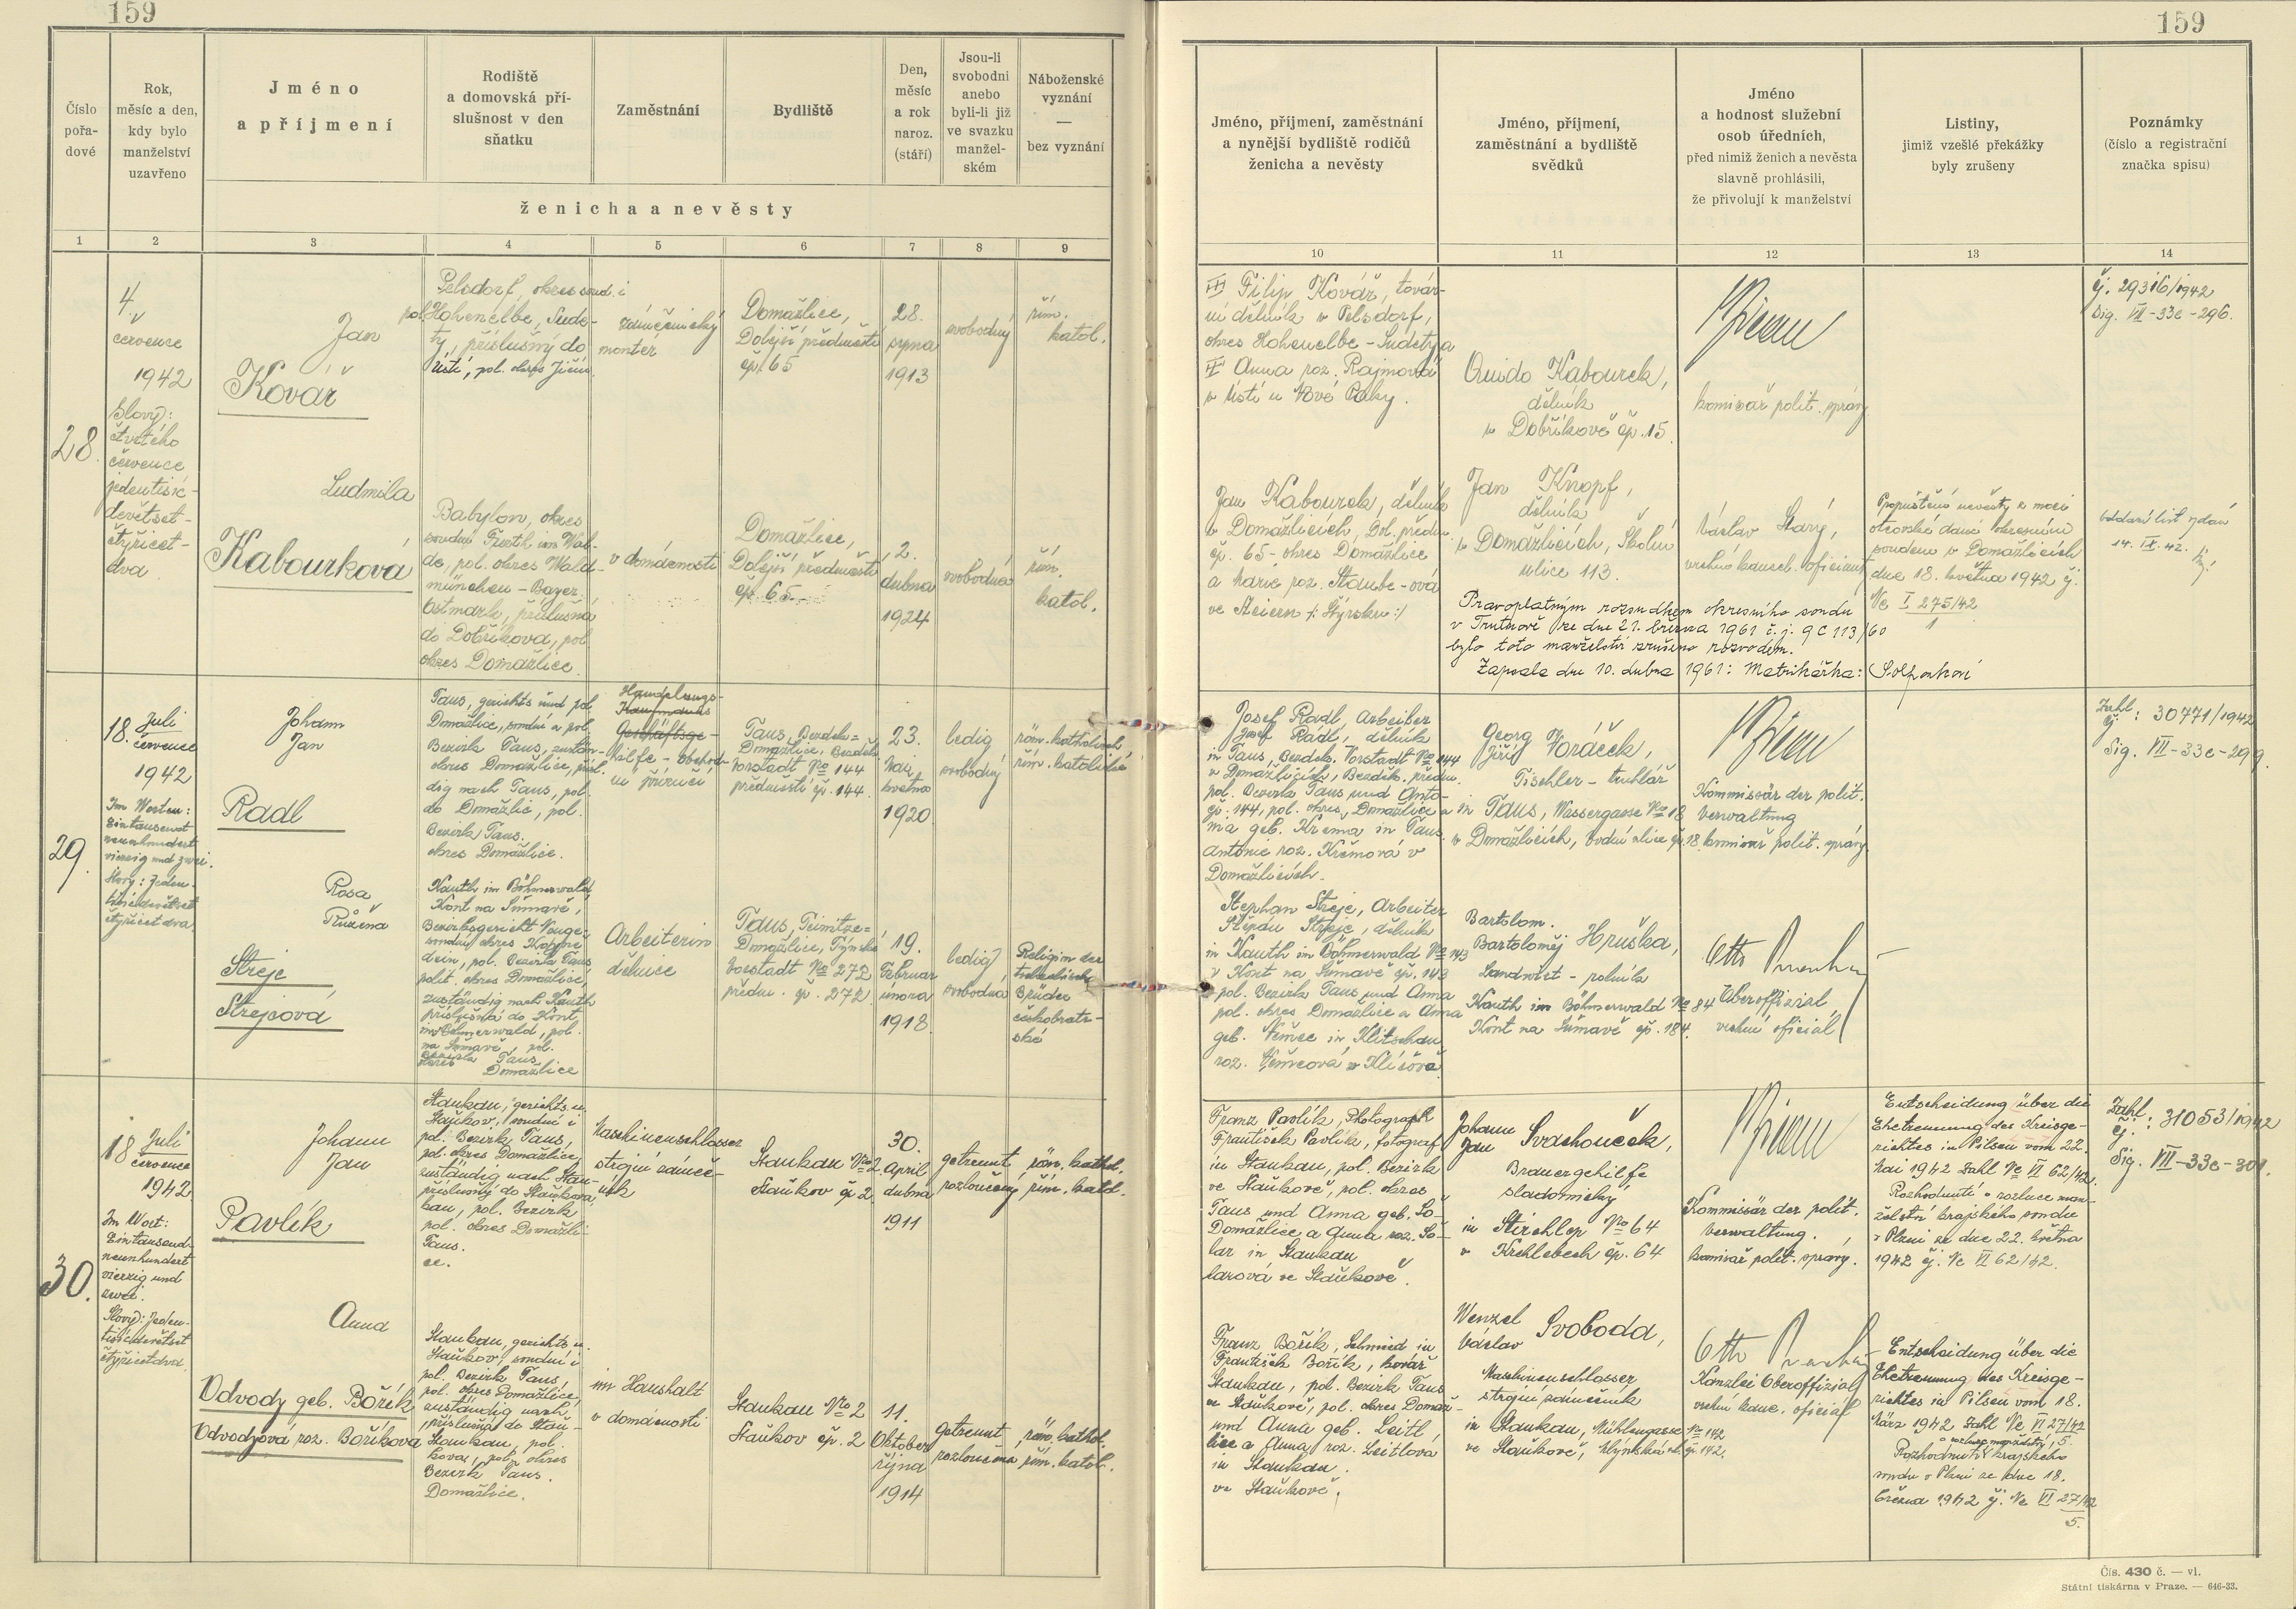 159
159
Číslo
pořa-
dové
Rok,
měsíc a den,
kdy bylo
manželství
uzavřeno
Jméno
a příjmení
Rodiště
a domovská pří-
slušnost v den
sňatku
Zaměstnání
Bydliště
Den,
měsíc
a rok
naroz.
(stáří)
Jsou-li
svobodni
anebo
byli-li již
ve svazku
manžel-
ském
Náboženské
vyznání
—
bez vyznání
ženicha a nevěsty
Jméno, příjmení, zaměstnání
a nynější bydliště rodičů
ženicha a nevěsty
Jméno, příjmení,
zaměstnání a bydliště
svědků
Jméno
a hodnost služební
osob úředních,
před nimiž ženich a nevěsta
slavně prohlásili,
že přivolují k manželství
Listiny,
jimiž vzešlé překážky
byly zrušeny
Poznámky
(číslo a registrační
značka spisu)
1 2 3 4 5 6 7 8 9 10 11 12 13 14
28.
4.
července
1942
Slovy:
čtvrtého
července
jedentisíc-
devětset-
čtyřicet-
dva
Jan
Kovář
Pelsdorf, okres soud. i
pol. Hohenelbe, Sude-
ty, příslušný do
Ústí, pol. okres Jičín.
zámečnický
montér
Domažlice,
Dolejší předměstí
čp. 65
28.
srpna
1913
svobodný
řím.
katol.
Filip Kovář, továr-
ní dělník v Pelsdorf,
okres Hohenelbe - Sudety a
Anna roz. Rajmová
v Ústí u Nové Paky.
Quido Kabourek,
dělník
v Dobříkově čp. 15.
komisař polit. správy
čj. 29316/1942
Sig. VII-33c-296.
Ludmila
Kabourková
Babylon, okres
soudní Furth im Wal-
de, pol. okres Wald-
münchen - Bayer.
Ostmark, příslušná
do Dobříkova, pol.
okres Domažlice.
v domácnosti
Domažlice,
Dolejší předměstí
čp. 65
2.
dubna
1924
svobodná
řím.
katol.
Jan Kabourek, dělník
v Domažlicích, Dol. předm.
čp. 65 - okres Domažlice
a Marie roz. Staube-ová
ve Steiern /: Štýrsku :/
Jan Knopf,
dělník
v Domažlicích, Školní
ulice 113.
Václav Starý,
vrchní kancel. oficiant
Propuštění nevěsty z moci
otcovské dané okresním
soudem v Domažlicích
dne 18. května 1942 čj.
Nc I 275/42
1
oddací list vydán
14. IX. 42.
Pravoplatným rozsudkem okresního soudu
v Trutnově ze dne 21. března 1961 č.j. 9 C 113/60
bylo toto manželství zrušeno rozvodem.
Zapsala dne 10. dubna 1961: Matrikářka:
29.
18. Juli
července
1942
Im Worten:
Eintausend
neunhundert
vierzig und zwei.
Slovy: Jeden-
tisícdevětset
čtyřicet dva.
Johann
Jan
Radl
Taus, gerichts und pol.
Domažlice, soudní a pol.
Bezirk Taus, zustän-
okres Domažlice, přísl.
dig nach Taus, pol.
do Domažlic, pol.
Bezirk Taus.
okres Domažlice.
Handelungs-
Kaufmanns
Geschäftsge-
hilfe - obchod-
ní příručí
Taus, Bezdek=
Domažlice, Bezděk.
Vorstadt No 144
předměstí čp. 144.
23.
Mai
května
1920
ledig
svobodný
röm. katholisch
řím. katolické
Josef Radl, Arbeiter
Josef Radl, dělník
in Taus, Bezdek. Vorstadt No 144
v Domažlicích, Bezděk. předm.
pol. Bezirk Taus und Anto-
čp. 144, pol. okres Domažlice a
nia geb. Krema in Taus.
Antonie roz. Křemová v
Domažlicích.
Georg
Jiří Voráček,
Tischler - truhlář
in Taus, Wassergasse No 18
v Domažlicích, Vodní ulice čp. 18.
Kommissär der polit.
Verwaltung
komisař polit. správy.
Zahl
čj.: 30771/1942
Sig. VII-33c-299.
Rosa
Růžena
Streje
Strejcová
Kauth im Böhmerwald,
Kout na Šumavě,
Bezirksgericht Neuge-
soudní okres Kdyně
dein, pol. Bezirk Taus
polit. okres Domažlice,
zuständig nach Kauth
příslušná do Kout
im Böhmerwald, pol.
na Šumavě, pol.
Bezirk Taus
okres Domažlice
Arbeiterin
dělnice
Taus, Teinitze=
Domažlice, Týnské
Vorstadt No 272
předm. čp. 272
19.
Februar
února
1918.
ledig
svobodná
Religion der
tschechischen
Brüder
českobratr-
ské
Stephan Streje, Arbeiter
Štěpán Streje, dělník
in Kauth im Böhmerwald No 143
v Kout na Šumavě čp. 143
pol. Bezirk Taus und Anna
pol. okres Domažlice a Anna
geb. Němec in Klitschau
roz. Němcová v Klíčově.
Bartolom.
Bartoloměj Hruška,
Landwirt - rolník
Kauth im Böhmerwald No 84
Kout na Šumavě čp. 184.
Oberoffizial
vrchní oficiál
30.
18 Juli
července
1942
Im Wort:
Eintausend-
neunhundert
vierzig und
zwei.
Slovy: Jeden-
tisícdevětset
čtyřicetdva
Johann
Jan
Pavlík
Staukau, gerichts u.
Staňkov, soudní i
pol. Bezirk Taus,
pol. okres Domažlice,
zuständig nach Stau-
příslušný do Staňkova,
kau, pol. Bezirk
pol. okres Domažli-
Taus.
ce.
Maschinenschlosser
strojní zámeč-
ník
Staukau No 2
Staňkov čp 2
30.
April
dubna
1911
getrennt
rozloučený
röm. kathol.
řím. katol.
Franz Pavlík, Photograph
František Pavlík, fotograf
in Staukau, pol. Bezirk
ve Staňkově, pol. okres
Taus und Anna geb. So-
Domažlice a Anna roz. So-
lar in Staukau
larová ve Staňkově.
Johann
Jan Svachouček,
Brauergehilfe
sladovnický
in Stirchlep No 64
v Křchlebech čp. 64
Kommissär der polit.
Verwaltung.
komisař polit. správy.
Entscheidung über die
Ehetrennung des Kreisge-
richtes in Pilsen vom 22.
Mai 1942 Zahl Nc VI 62/42.
Rozhodnutí o rozluce man-
želství krajského soudu
v Plzni ze dne 22. května
1942 čj. Nc VI 62/42.
Zahl
čj.: 31053/1942
Sig. VII-33c-301.
Anna
Vdvody geb. Bořík
Odvodyová roz. Boříková
Staukau, gerichts u.
Staňkov, soudní i
pol. Bezirk Taus,
pol. okres Domažlice,
zuständig nach
příslušná do Staň-
Staukau, pol.
kova, pol. okres
Bezirk Taus.
Domažlice.
im Haushalt
v domácnosti
Staukau No 2
Staňkov čp. 2
11.
Oktober
října
1914
getrennt
rozloučená
röm. kathol.
řím. katol.
Franz Bořík, Schmied in
František Bořík, kovář
Staukau, pol. Bezirk Taus
ve Staňkově, pol. okres Domaž-
und Anna geb. Leitl,
lice a Anna roz. Leitlova
in Staukau.
ve Staňkově.
Wenzel
Václav Svoboda,
Maschinenschlosser
strojní zámečník
in Staukau, Mühlengasse No 142
ve Staňkově, Mlýnská ul. čp. 142.
Kanzlei Oberoffizial
vrchní kanc. oficiál
Entscheidung über die
Ehetrennung des Kreisge-
richtes in Pilsen vom 18.
März 1942 Zahl Nc VI 27/42
5.
o rozluce manželství
Rozhodnutí krajského
soudu v Plzni ze dne 18.
března 1942 čj. Nc VI 27/42
5.
Čís. 430 č. — vl.
Státní tiskárna v Praze. — 646-33.